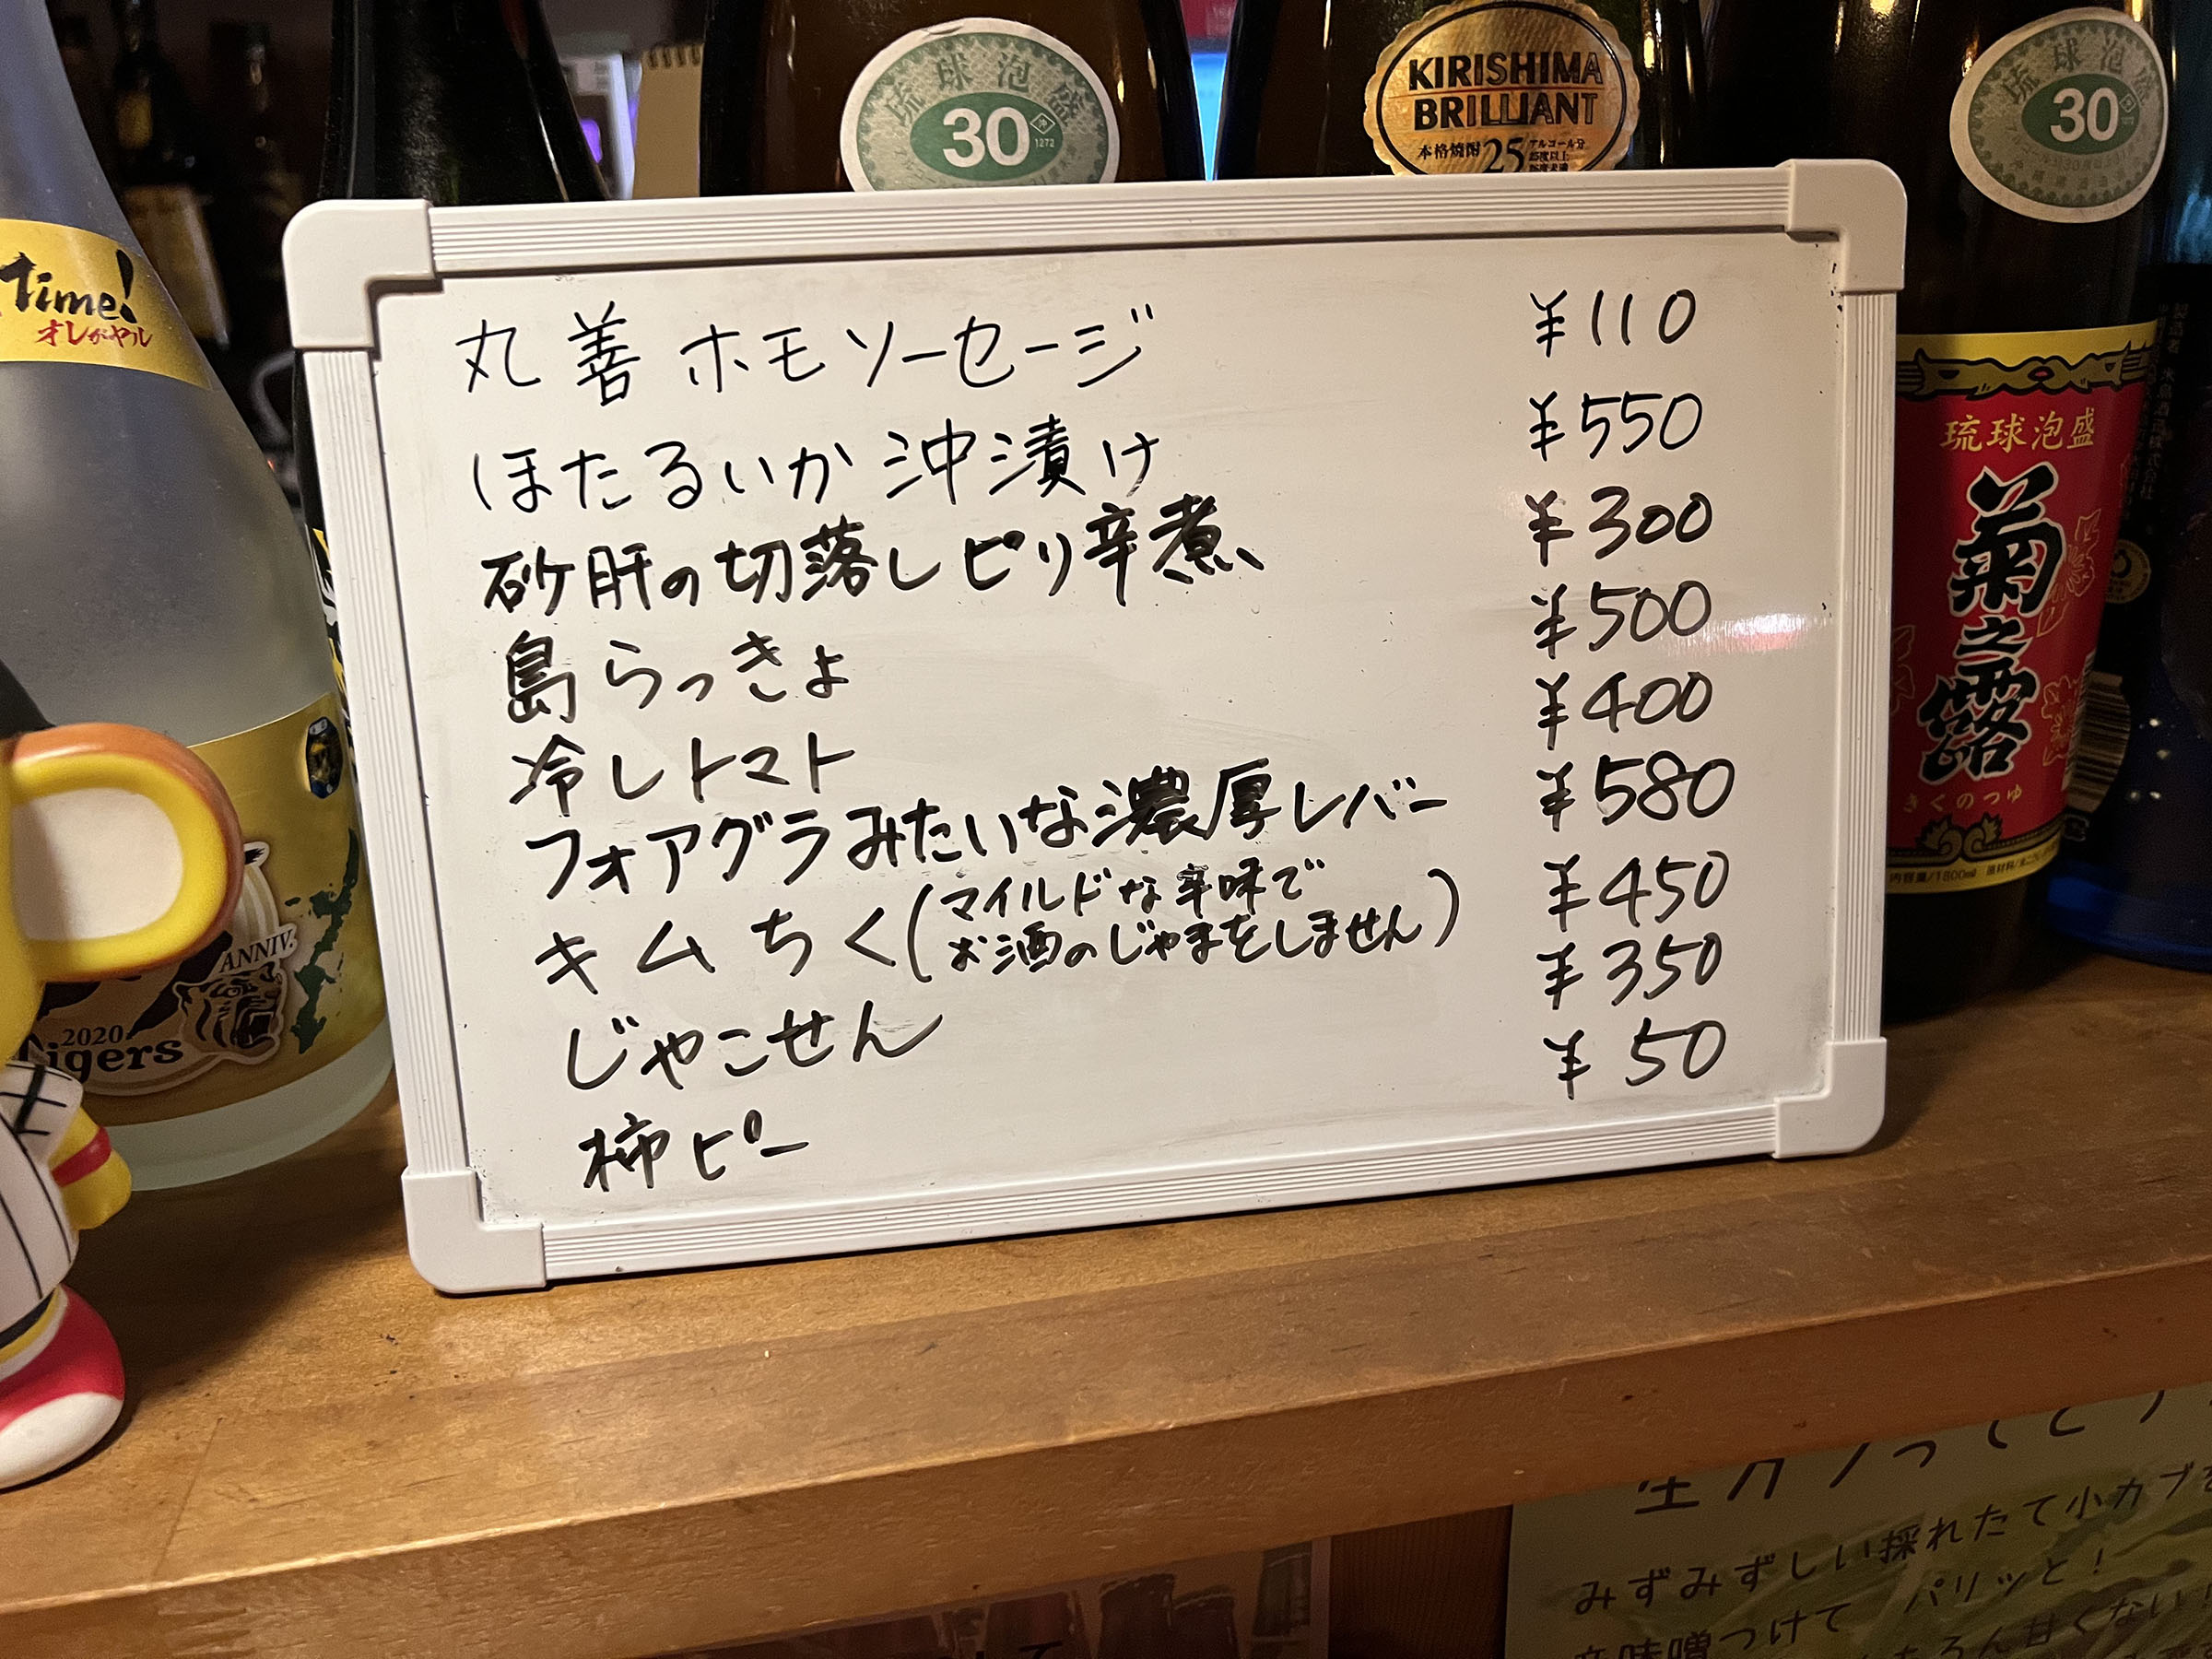 琉球泡盛
30
1272
KIRISHIMA
BRILLIANT
本格焼酎 25 アルコール分
25度以上
琉球泡盛
30
Time!
オレがヤル
丸善 ホモソーセージ ¥110
ほたるいか 沖漬け ¥550
砂肝の切落しピリ辛煮 ¥300
島らっきょ ¥500
冷しトマト ¥400
フォアグラみたいな濃厚レバー ¥580
キムちく(マイルドな辛味で
お酒のじゃまをしません) ¥450
じゃこせん ¥350
柿ピー ¥50
琉球泡盛
菊之露
きくのつゆ
内容量/1800ml
ANNIV.
2020
Tigers
みずみずしい採れたて小カブを
辛味噌つけて パリッと!